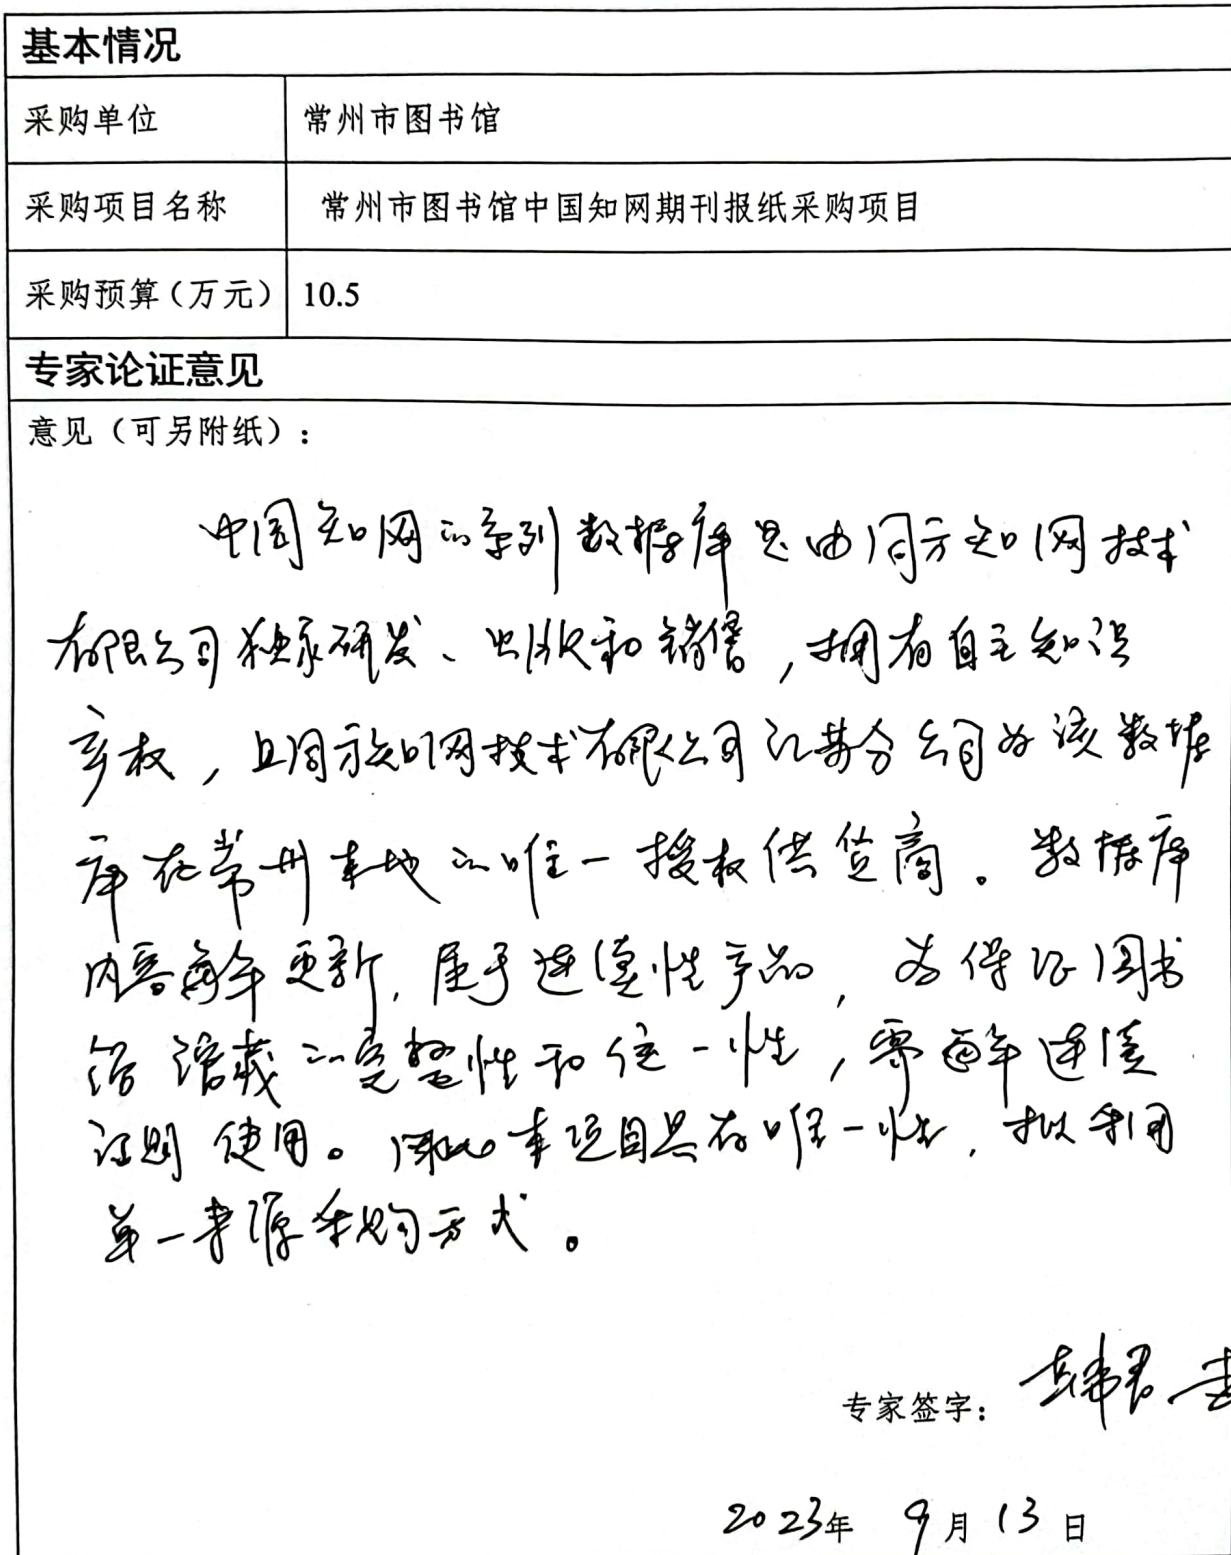 基本情况
采购单位 常州市图书馆
采购项目名称 常州市图书馆中国知网期刊报纸采购项目
采购预算（万元） 10.5
专家论证意见
意见（可另附纸）：
中国知网的系列数据库是由同方知网技术
有限公司独家研发、出版和销售，拥有自主知识
产权，且同方知网技术有限公司江苏分公司为该数据
库在常州本地的唯一授权供货商。数据库
内容每年更新，属于连续性产品，为保证图书
馆馆藏的完整性和统一性，需每年连续
订购使用。因此本项目具有唯一性，拟采用
单一来源采购方式。
专家签字：
2023年 9月13日